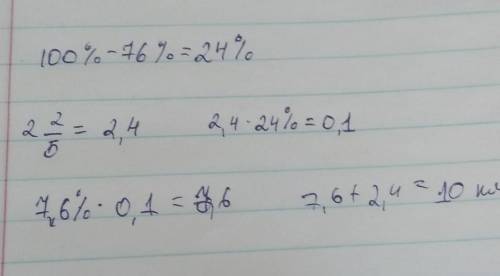 100% - 76% = 24%
2 2/5 = 2,4 2,4 · 24% = 0,1
7,6% · 0,1 = 7,6 7,6 + 2,4 = 10 км